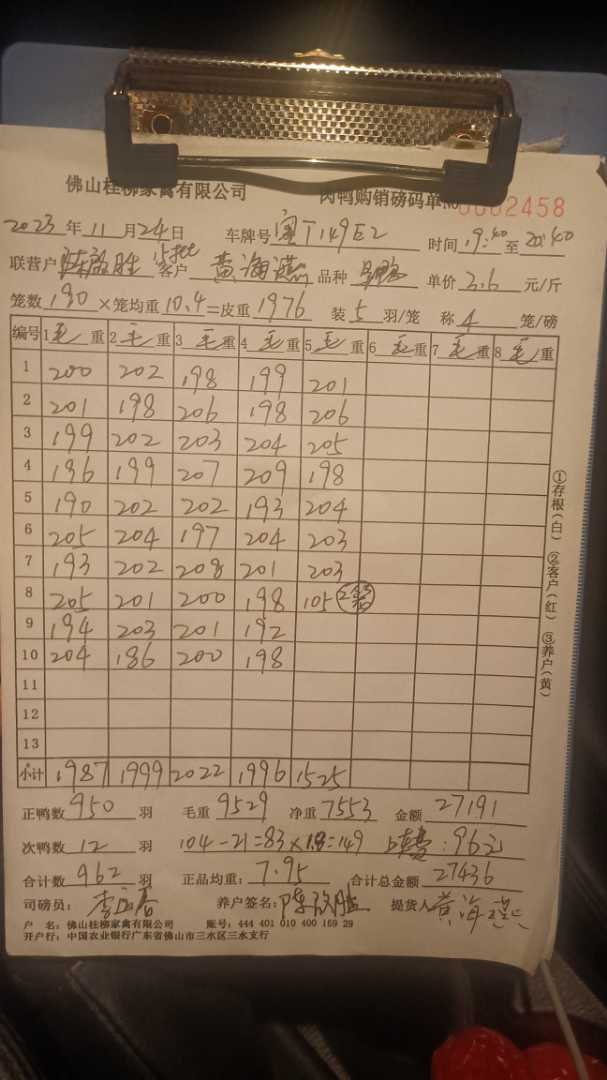 佛山桂柳家禽有限公司 肉鸭购销磅码单 No 0002458
2023 年 11 月 24 日 车牌号 T149E2 时间 19:40 至 20:40
联营户 陈 胜 客户 黄海 品种 单价 3.6 元/斤
笼数 190 ×笼均重 10.4 =皮重 1976 装 5 羽/笼 称 4 笼/磅
编号 1 毛 重 2 毛 重 3 毛 重 4 毛 重 5 毛 重 6 毛 重 7 毛 重 8 毛 重
1 200 202 198 199 201
2 201 198 206 198 206
3 199 202 203 204 205
4 196 199 207 209 198
5 190 202 202 193 204
6 205 204 197 204 203
7 193 202 208 201 203
8 205 201 200 198 105
9 194 203 201 192
10 204 186 200 198
11
12
13
小计 1987 1999 2022 1996 1525
正鸭数 950 羽 毛重 9529 净重 7553 金额 27191
次鸭数 12 羽 104-21=83×1.8=149 96元
合计数 962 羽 正品均重: 7.95 合计总金额 27436
司磅员: 李 养户签名: 陈 胜 提货人 黄海
户 名: 佛山桂柳家禽有限公司 账号: 444 401 010 400 159 29
开户行: 中国农业银行广东省佛山市三水区三水支行
①存根(白) ②客户(红) ③养户(黄)